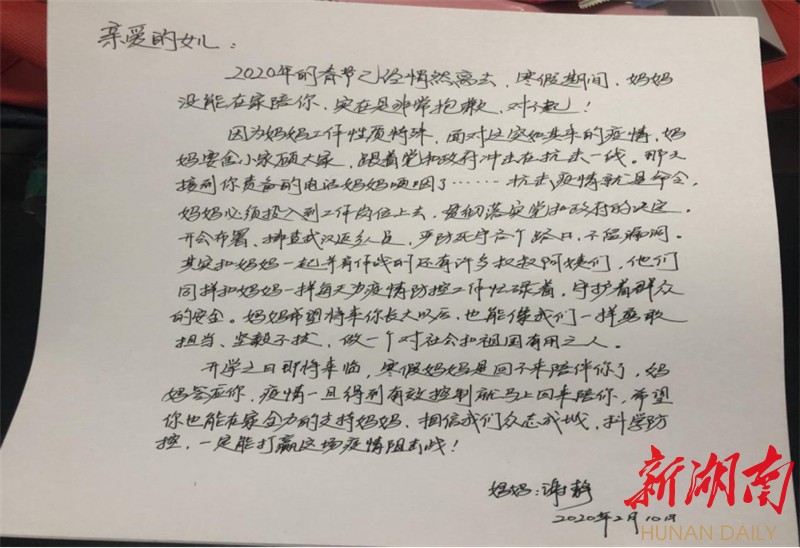 亲爱的女儿：
2020年的春节已经悄然离去，寒假期间，妈妈
没能在家陪你，实在是非常抱歉，对不起！
因为妈妈工作性质特殊，面对这突如其来的疫情，妈
妈要舍小家顾大家，跟着党和政府冲击在抗击一线。那天
接到你责备的电话妈妈哽咽了……抗击疫情就是命令，
妈妈必须投入到工作岗位上去，贯彻落实党和政府的决定。
开会布署、排查武汉返乡人员，严防死守各个路口，不留漏洞。
其实和妈妈一起并肩作战的还有许多叔叔阿姨们，他们
同样和妈妈一样每天为疫情防控工作忙碌着，守护着群众
的安全。妈妈希望将来你长大以后，也能像我们一样勇敢
担当、坚毅不拔，做一个对社会和祖国有用之人。
开学之日即将来临，寒假妈妈是回不来陪伴你了，妈
妈答应你，疫情一旦得到有效控制就马上回来陪你，希望
你也能在家全力的支持妈妈，相信我们众志成城，科学防
控，一定能打赢这场疫情阻击战！
妈妈：谢静
2020年2月10日
新湖南
HUNAN DAILY